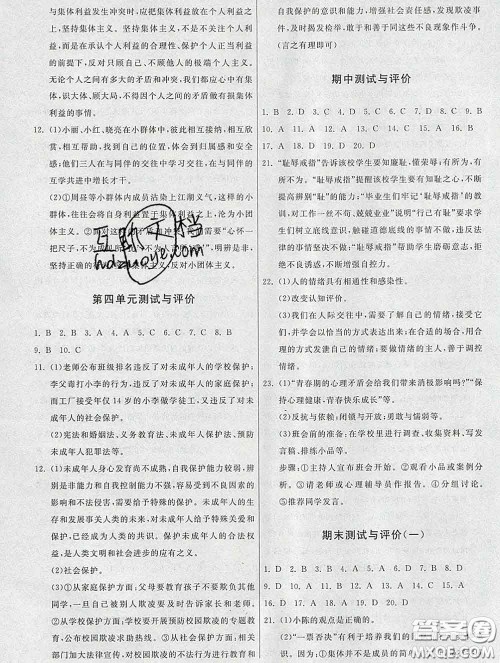 与集体利益发生冲突时,应把集体利益放在个人利益之
上,坚持集体主义。坚持集体主义,不是不讲个人利
益,而是在承认个人利益的合理性、保护个人正当利益的
前提下,反对只顾自己、不顾他人的极端个人主义。
无论个人之间有多大的矛盾和冲突,我们都应心中有集
体,识大体、顾大局,不得因个人之间的矛盾做有损集体
利益的事情。
12. (1)小丽、小红、晓亮在小群体中,彼此相互接纳,相互欣
赏,相互帮助,找到了自己的位置,体会到归属感和安全
感;他们三人在与同伴的交往中学习交往,在与同伴的
互学共进中增长才干。
(2)周益等小群体内成员沾染上江湖义气,这样的小
群体,往往会将自身利益置于集体利益之上,沦为小团
体主义。
坚持正确的
,反对小团体主义。
第四单元测试与评价
1. B 2. B 3. A 4. D 5. A 6. C 7. C 8. C
9. B 10. C
11. (1)老师公布班级排名违反了对未成年人的学校保护;
李父毒打小李的行为,违反了对未成年人的家庭保护;
而工厂接受年仅 14 岁的小兰打工的行为违反了对未
成年人的社会保护。
(2)宪法和婚姻法、义务教育法、未成年人保护法、预防
未成年人犯罪法等。
12. (1)未成年人身心发育尚不成熟,自我保护能力较弱,辨
别是非能力和自我控制能力不强,容易受到不良因素的
影响和不法侵害,需要给予特殊的保护。未成年人的生
存和发展事关人类的未来,对未成年人给予特殊关爱和
保护,已经成为人类的共识。给予未成年人特殊的保
护,是人类文明和社会进步的应有之义。
(2)社会保护。
(3)①从家庭保护方面:父母要教育孩子不要欺负其他
同学,遇到被人欺凌要及时告诉家长和老师。②从学校
保护方面:学校要开展预防校园欺凌治理的专题教育,
公布校园欺凌求助热线。③从社会保护方面:社会相关
部门要加大法律宣传,对校园欺凌行为依
我保护的意识和能力,增强社会责任感,发现欺凌事
件,及时揭发检举,敢于并善于同这些不良现象作斗争。
(言之有理即可)
期中测试与评价
1. B 2. D 3. C 4. D 5. C 6. D 7. D 8. B
9. D 10. A 11. A 12. D 13. A 14. C 15. C
16. A 17. A 18. D 19. D 20. A
21. “耻辱戒指”告诉该校学生要知廉耻,懂荣辱;有所为,有
所不为。“耻辱戒指”提醒该校学生要有知耻之心,不断
提高辨别“耻”的能力;“毕业生们牢记‘耻辱戒指’的教
训,一丝不苟、兢兢业业”说明“行己有耻”需要该校学生
们树立底线意识,触碰道德底线的事情不做,违反法
律的事情坚决不做;“耻辱戒指”帮助学生磨砺意志,拒
绝不良诱惑,不断增强自控力。
22. (1)人的情绪具有相通性和感染性。
(2)改变认知评价。
(3)在人际交往中,我们需要了解自己的情绪,接受它
们,并学会以恰当的方式表达出来;在合适的场合,用合
理的方式表达自己的情绪;要做情绪的主人,善于调控
情绪。
23. (1)“青春期的心理矛盾会给我们带来消极影响吗?”“保
持心理健康,青春快乐成长”等。
(2)反抗与依赖、闭锁与开放、勇敢与怯懦等。
(3)会前准备:在学校里进行调查、收集资料、写发言
稿、排练小品等。
步骤:①主持人宣布班会开始。②表演小品或案例分
析。③请老师或心理辅导员作报告。④讨论、总结。
⑤推荐同学发言。
期末测试与评价(一)
9. D 10. D 11. C 12. D
16. D 17. D 18. C
21. (1)小陈的观点是正确的。
(2)“一票否决”有利于培养我们的